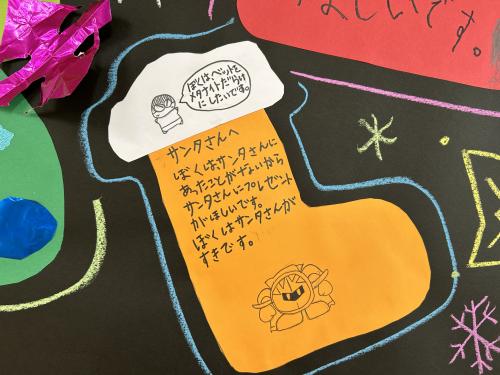 よしいです。
ぼくは、ベットを
メタナイトだらけ
にしたいです。
サンタさんへ
ぼくはサンタさんに
あったことがないから
サンタさんにプレゼント
がほしいです。
ぼくはサンタさんが
すきです。